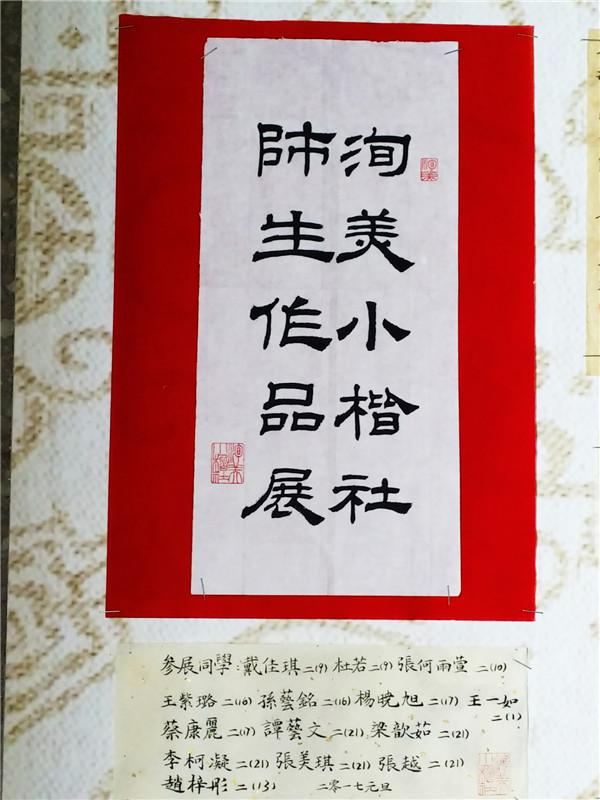 洵美小楷社
師生作品展
參展同學:戴佳琪二(9) 杜若二(9) 張何雨萱二(10)
王紫璐二(16) 孫藝銘二(16) 楊曉旭二(17) 王一如二(1)
蔡康麗二(17) 譚藝文二(21) 梁歆茹二(21)
李柯凝二(21) 張美琪二(21) 張越二(21)
趙梓彤二(13) 二零一七元旦